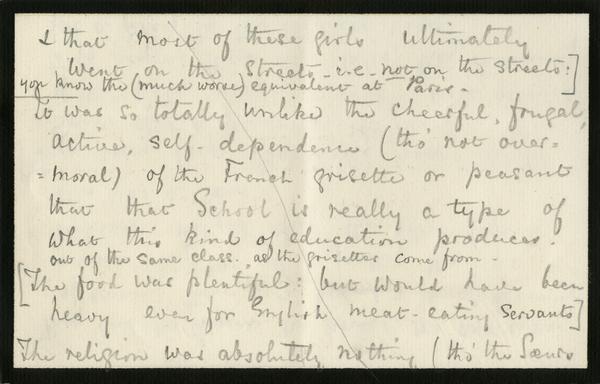 & that most of these girls ultimately
went on the streets - i.e. not on the streets:]
you know the (much worse) equivalent at Paris.
It was so totally unlike the cheerful, frugal,
active, self-dependence (tho' not over-
=moral) of the French grisette or peasant
that that School is really a type of
what this kind of education produces.
out of the same class, as the grisettes come from -
[The food was plentiful: but would have been
heavy even for English meat-eating servants]
The religion was absolutely nothing (tho' the Sœurs